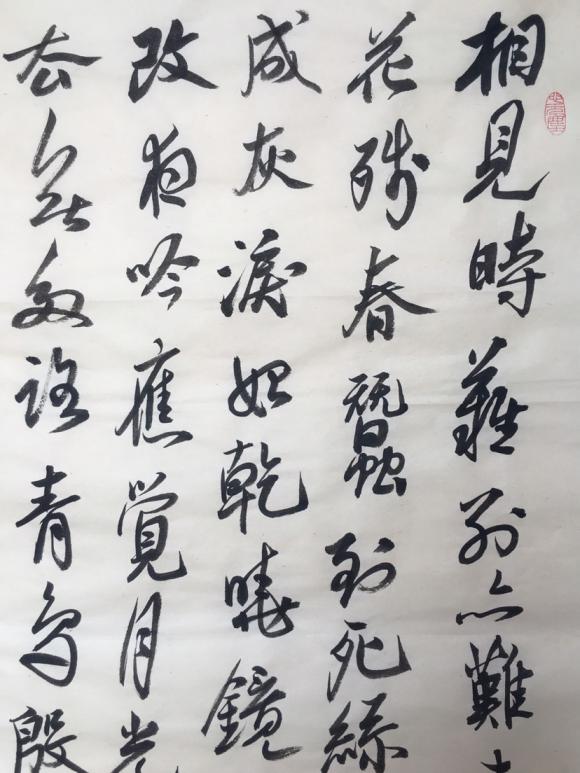 相見時難別亦難
花殘春蠶到死絲
成灰淚始乾曉鏡
改夜吟應覺月光
去無多路青鳥殷